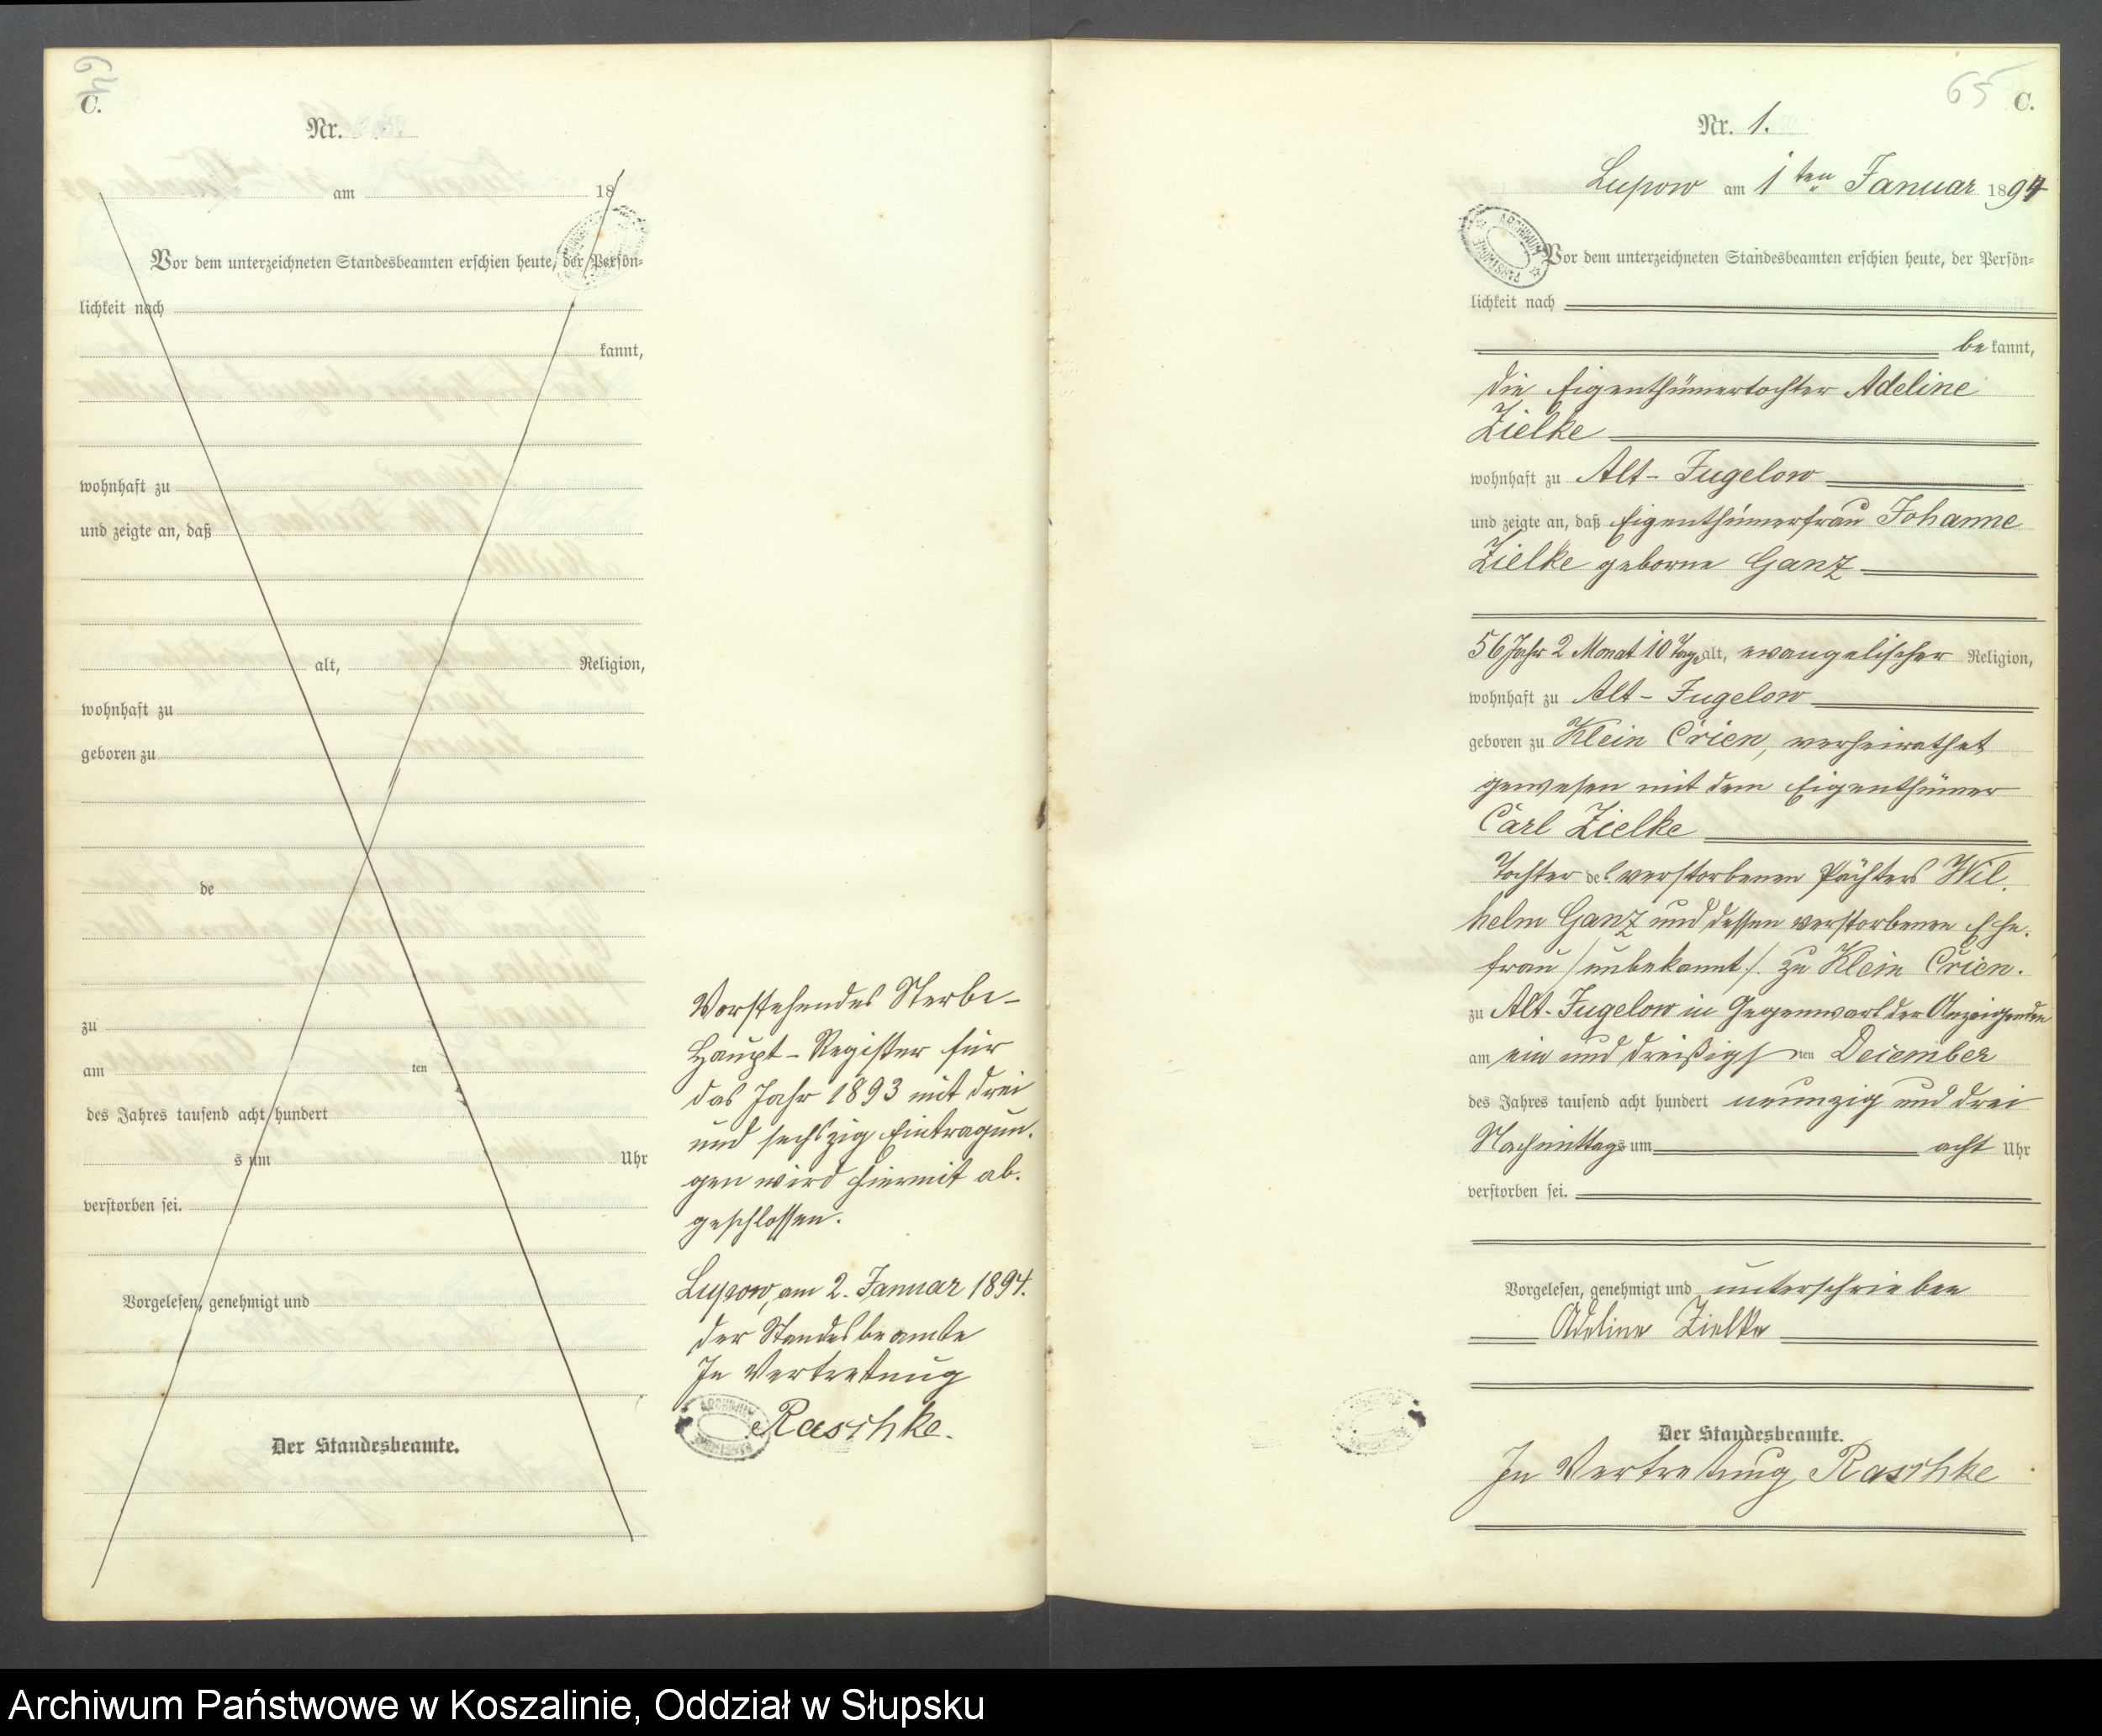 64
C.
Nr.
am 18
Vor dem unterzeichneten Standesbeamten erschien heute, der Persön-
lichkeit nach
kannt,
wohnhaft zu
und zeigte an, daß
alt, Religion,
wohnhaft zu
geboren zu
de
zu
am ten
des Jahres tausend acht hundert
s um Uhr
verstorben sei.
Vorgelesen, genehmigt und
Der Standesbeamte.
Vorstehendes Sterbe-
Haupt-Register für
das Jahr 1893 mit drei
und sechszig Eintragun-
gen wird hiermit ab-
geschlossen.
Lupow, am 2. Januar 1894.
der Standesbeamte
In Vertretung
Raschke.
65 C.
Nr. 1.
Lupow am 1ten Januar 1894
Vor dem unterzeichneten Standesbeamten erschien heute, der Persön-
lichkeit nach
bekannt,
die Eigenthümertochter Adeline
Zielke
wohnhaft zu Alt-Jugelow
und zeigte an, daß Eigenthümerfrau Johanne
Zielke geborne Ganz
56 Jahr 2 Monat 10 Tage alt, evangelischer Religion,
wohnhaft zu Alt-Jugelow
geboren zu Klein Crien, verheirathet
gewesen mit dem Eigenthümer
Carl Zielke
Tochter des verstorbenen Pächters Wil-
helm Ganz und dessen verstorbenen Ehe-
frau /unbekannt/. zu Klein Crien.
zu Alt-Jugelow in Gegenwart der Anzeigenden
am ein und dreißigsten December
des Jahres tausend acht hundert neunzig und drei
Nachmittags um acht Uhr
verstorben sei.
Vorgelesen, genehmigt und unterschrieben
Adeline Zielke
Der Standesbeamte.
In Vertretung Raschke
Archiwum Państwowe w Koszalinie, Oddział w Słupsku